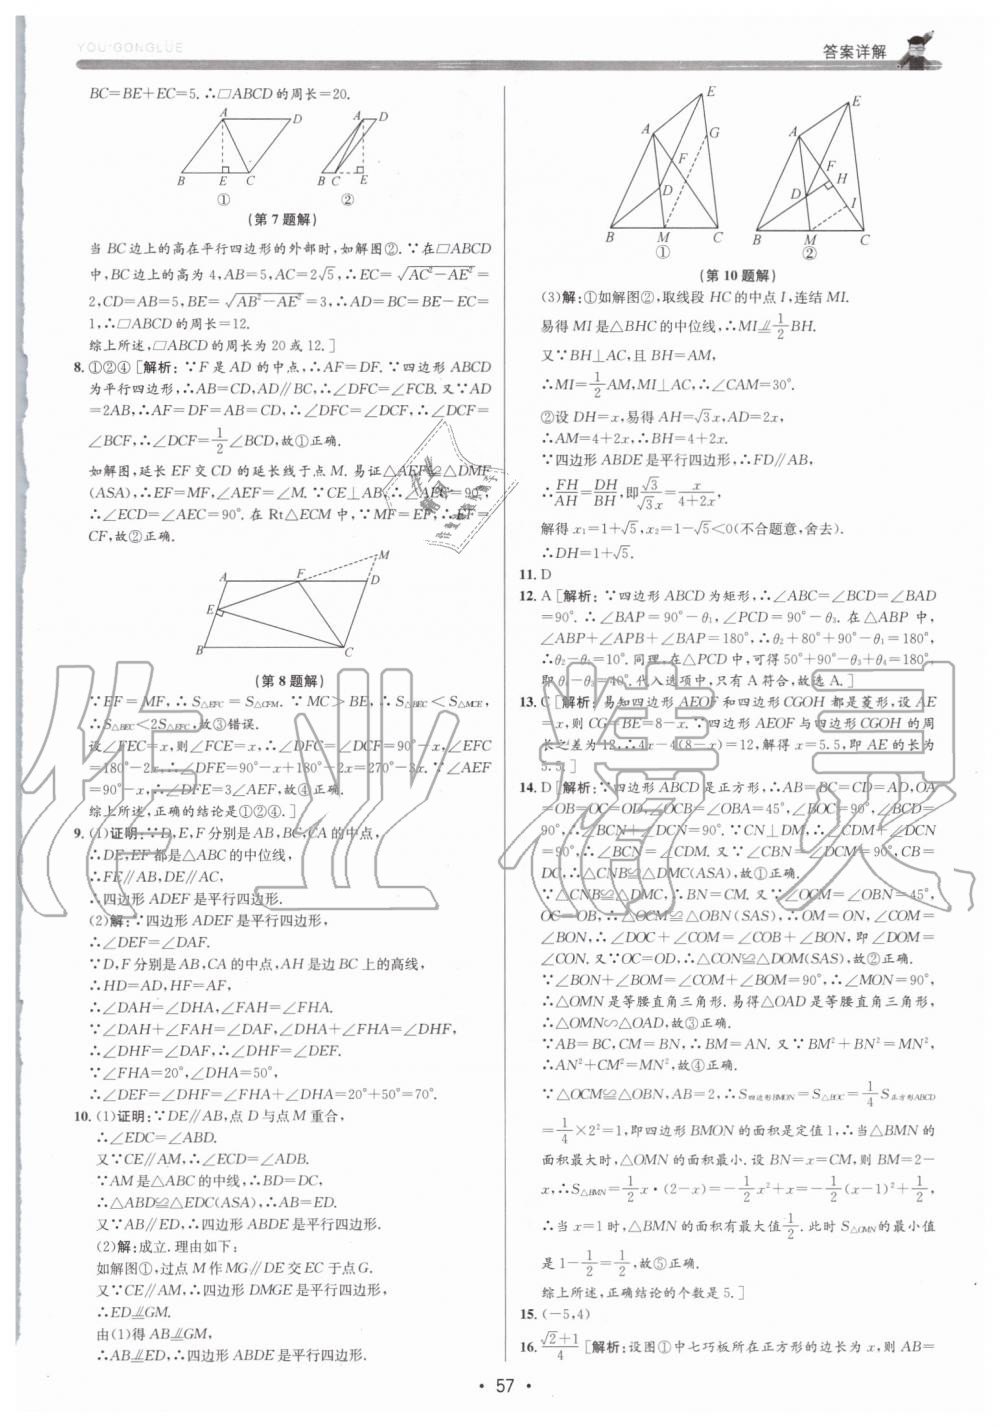 YOU·GONGLÜE
答案详解
BC=BE+EC=5.∴□ABCD的周长=20.
A D A D
B E C B C E
① ②
(第7题解)
当BC边上的高在平行四边形的外部时,如解图②.∵在□ABCD
中,BC边上的高为4,AB=5,AC=2√5,∴EC=√AC²-AE²=
2,CD=AB=5,BE=√AB²-AE²=3,∴AD=BC=BE-EC=
1,∴□ABCD的周长=12.
综上所述,□ABCD的周长为20或12.]
8.①②④[解析:∵F是AD的中点,∴AF=DF.∵四边形ABCD
为平行四边形,∴AB=CD,AD∥BC,∴∠DFC=∠FCB.又∵AD
=2AB,∴AF=DF=AB=CD,∴∠DFC=∠DCF,∴∠DCF=
∠BCF,∴∠DCF=1/2∠BCD,故①正确.
如解图,延长EF交CD的延长线于点M.易证△AEF≌△DMF
(ASA),∴EF=MF,∠AEF=∠M.∵CE⊥AB,∴∠AEC=90°,
∴∠ECD=∠AEC=90°.在Rt△ECM中,∵MF=EF,∴EF=
CF,故②正确.
M
A F D
E
B C
(第8题解)
∵EF=MF,∴S△EFC=S△CFM.∵MC>BE,∴S△BEC<S△MCE,
∴S△BEC<2S△EFC,故③错误.
设∠FEC=x,则∠FCE=x,∴∠DFC=∠DCF=90°-x,∠EFC
=180°-2x,∴∠DFE=90°-x+180°-2x=270°-3x.∵∠AEF
=90°-x,∴∠DFE=3∠AEF,故④正确.
综上所述,正确的结论是①②④.]
9.(1)证明:∵D,E,F分别是AB,BC,CA的中点,
∴DE,EF都是△ABC的中位线,
∴FE∥AB,DE∥AC,
∴四边形ADEF是平行四边形.
(2)解:∵四边形ADEF是平行四边形,
∴∠DEF=∠DAF.
∵D,F分别是AB,CA的中点,AH是边BC上的高线,
∴HD=AD,HF=AF,
∴∠DAH=∠DHA,∠FAH=∠FHA.
∵∠DAH+∠FAH=∠DAF,∠DHA+∠FHA=∠DHF,
∴∠DHF=∠DAF,∴∠DHF=∠DEF.
∵∠FHA=20°,∠DHA=50°,
∴∠DEF=∠DHF=∠FHA+∠DHA=20°+50°=70°.
10.(1)证明:∵DE∥AB,点D与点M重合,
∴∠EDC=∠ABD.
又∵CE∥AM,∴∠ECD=∠ADB.
∵AM是△ABC的中线,∴BD=DC,
∴△ABD≌△EDC(ASA),∴AB=ED.
又∵AB∥ED,∴四边形ABDE是平行四边形.
(2)解:成立.理由如下:
如解图①,过点M作MG∥DE交EC于点G.
又∵CE∥AM,∴四边形DMGE是平行四边形,
∴ED⫫GM.
由(1)得AB⫫GM,
∴AB⫫ED,∴四边形ABDE是平行四边形.
E E
A G A
F F
D D H
I
B M C B M C
① ②
(第10题解)
(3)解:①如解图②,取线段HC的中点I,连结MI.
易得MI是△BHC的中位线,∴MI⫫1/2BH.
又∵BH⊥AC,且BH=AM,
∴MI=1/2AM,MI⊥AC,∴∠CAM=30°.
②设DH=x,易得AH=√3x,AD=2x,
∴AM=4+2x,∴BH=4+2x.
∵四边形ABDE是平行四边形,∴FD∥AB,
∴FH/AH=DH/BH,即√3/√3x=x/4+2x,
解得x₁=1+√5,x₂=1-√5<0(不合题意,舍去).
∴DH=1+√5.
11.D
12.A[解析:∵四边形ABCD为矩形,∴∠ABC=∠BCD=∠BAD
=90°.∴∠BAP=90°-θ₁,∠PCD=90°-θ₃.在△ABP中,
∠ABP+∠APB+∠BAP=180°,∴θ₂+80°+90°-θ₁=180°,
∴θ₂-θ₁=10°.同理,在△PCD中,可得50°+90°-θ₃+θ₄=180°,
即θ₄-θ₃=40°.代入选项中,只有A符合,故选A.]
13.C[解析:易知四边形AEOF和四边形CGOH都是菱形,设AE
=x,则CG=BE=8-x.∵四边形AEOF与四边形CGOH的周
长之差为12,∴4x-4(8-x)=12,解得x=5.5,即AE的长为
5.5.]
14.D[解析:∵四边形ABCD是正方形,∴AB=BC=CD=AD,OA
=OB=OC=OD,∠OCB=∠OBA=45°,∠BOC=90°,∠BCD=
90°,∴∠BCN+∠DCN=90°.∵CN⊥DM,∴∠CDM+∠DCN
=90°,∴∠BCN=∠CDM.又∵∠CBN=∠DCM=90°,CB=
DC,∴△CNB≌△DMC(ASA),故①正确.
∵△CNB≌△DMC,∴BN=CM.又∵∠OCM=∠OBN=45°,
OC=OB,∴△OCM≌△OBN(SAS),∴OM=ON,∠COM=
∠BON,∴∠DOC+∠COM=∠COB+∠BON,即∠DOM=
∠CON.又∵OC=OD,∴△CON≌△DOM(SAS),故②正确.
∵∠BON+∠BOM=∠COM+∠BOM=90°,∴∠MON=90°,
∴△OMN是等腰直角三角形.易得△OAD是等腰直角三角形,
∴△OMN∽△OAD,故③正确.
∵AB=BC,CM=BN,∴BM=AN.又∵BM²+BN²=MN²,
∴AN²+CM²=MN²,故④正确.
∵△OCM≌△OBN,AB=2,∴S四边形BMON=S△BOC=1/4S正方形ABCD
=1/4×2²=1,即四边形BMON的面积是定值1,∴当△BMN的
面积最大时,△OMN的面积最小.设BN=x=CM,则BM=2-
x,∴S△BMN=1/2x·(2-x)=-1/2x²+x=-1/2(x-1)²+1/2,
∴当x=1时,△BMN的面积有最大值1/2.此时S△OMN的最小值
是1-1/2=1/2,故⑤正确.
综上所述,正确结论的个数是5.]
15.(-5,4)
16.√2+1/4[解析:设图①中七巧板所在正方形的边长为x,则AB=
·57·
作业精灵